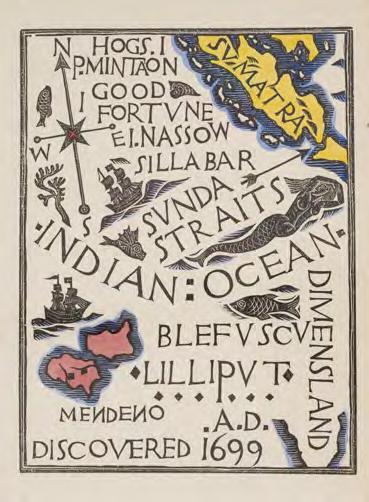 N HOGS. I
P. MINTAON
I GOOD
FORTVNE
E I. NASSOW
W
SILLABAR
SVMATRA
S
SVNDA
STRAITS
·INDIAN:OCEAN·
BLEFVSCV
DIMENSLAND
·LILLIPVT·
MENDENO
.A.D.
DISCOVERED 1699